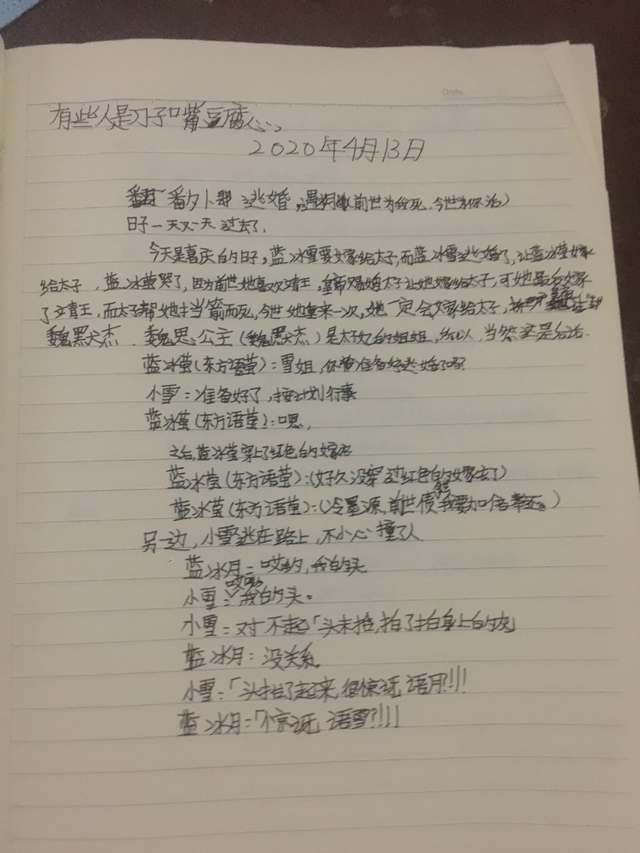 Date
有些人是刀子嘴豆腐心
2020年4月13日
番外 逃婚,遇月(前世为我死,今世为你活)
日子一天又一天过去了.
今天是喜庆的日子,蓝冰雪要嫁给太子,而蓝冰雪逃婚了,让蓝冰萤嫁
给太子.蓝冰萤哭了,因为前世她喜欢靖王,皇帝赐婚太子让她嫁给太子,可她最后嫁
了靖王,而太子帮她挡箭而死,今世她重来一次,她一定会嫁给太子,
魏黑大杰.魏思公主(魏黑大杰)是太子的姐姐,所以,当然还是后话.
蓝冰萤(东方语萤):雪姐,你准备好逃婚了吗
小雪:准备好了,按计划行事
蓝冰萤(东方语萤):嗯.
之后蓝冰萤穿上了红色的嫁衣
蓝冰萤(东方语萤):(好久没穿过红色的嫁衣了)
蓝冰萤(东方语萤):(冷墨源,前世债我要加倍奉还。)
另一边,小雪逃在路上,不小心撞了人
蓝冰月:哎哟,我的头
小雪:哎哟我的头。
小雪:对不起「头未抬,拍了拍身上的灰」
蓝冰月:没关系.
小雪:「头抬了起来,很惊讶 语月?!!!
蓝冰月:「惊讶 语雪?!!!!